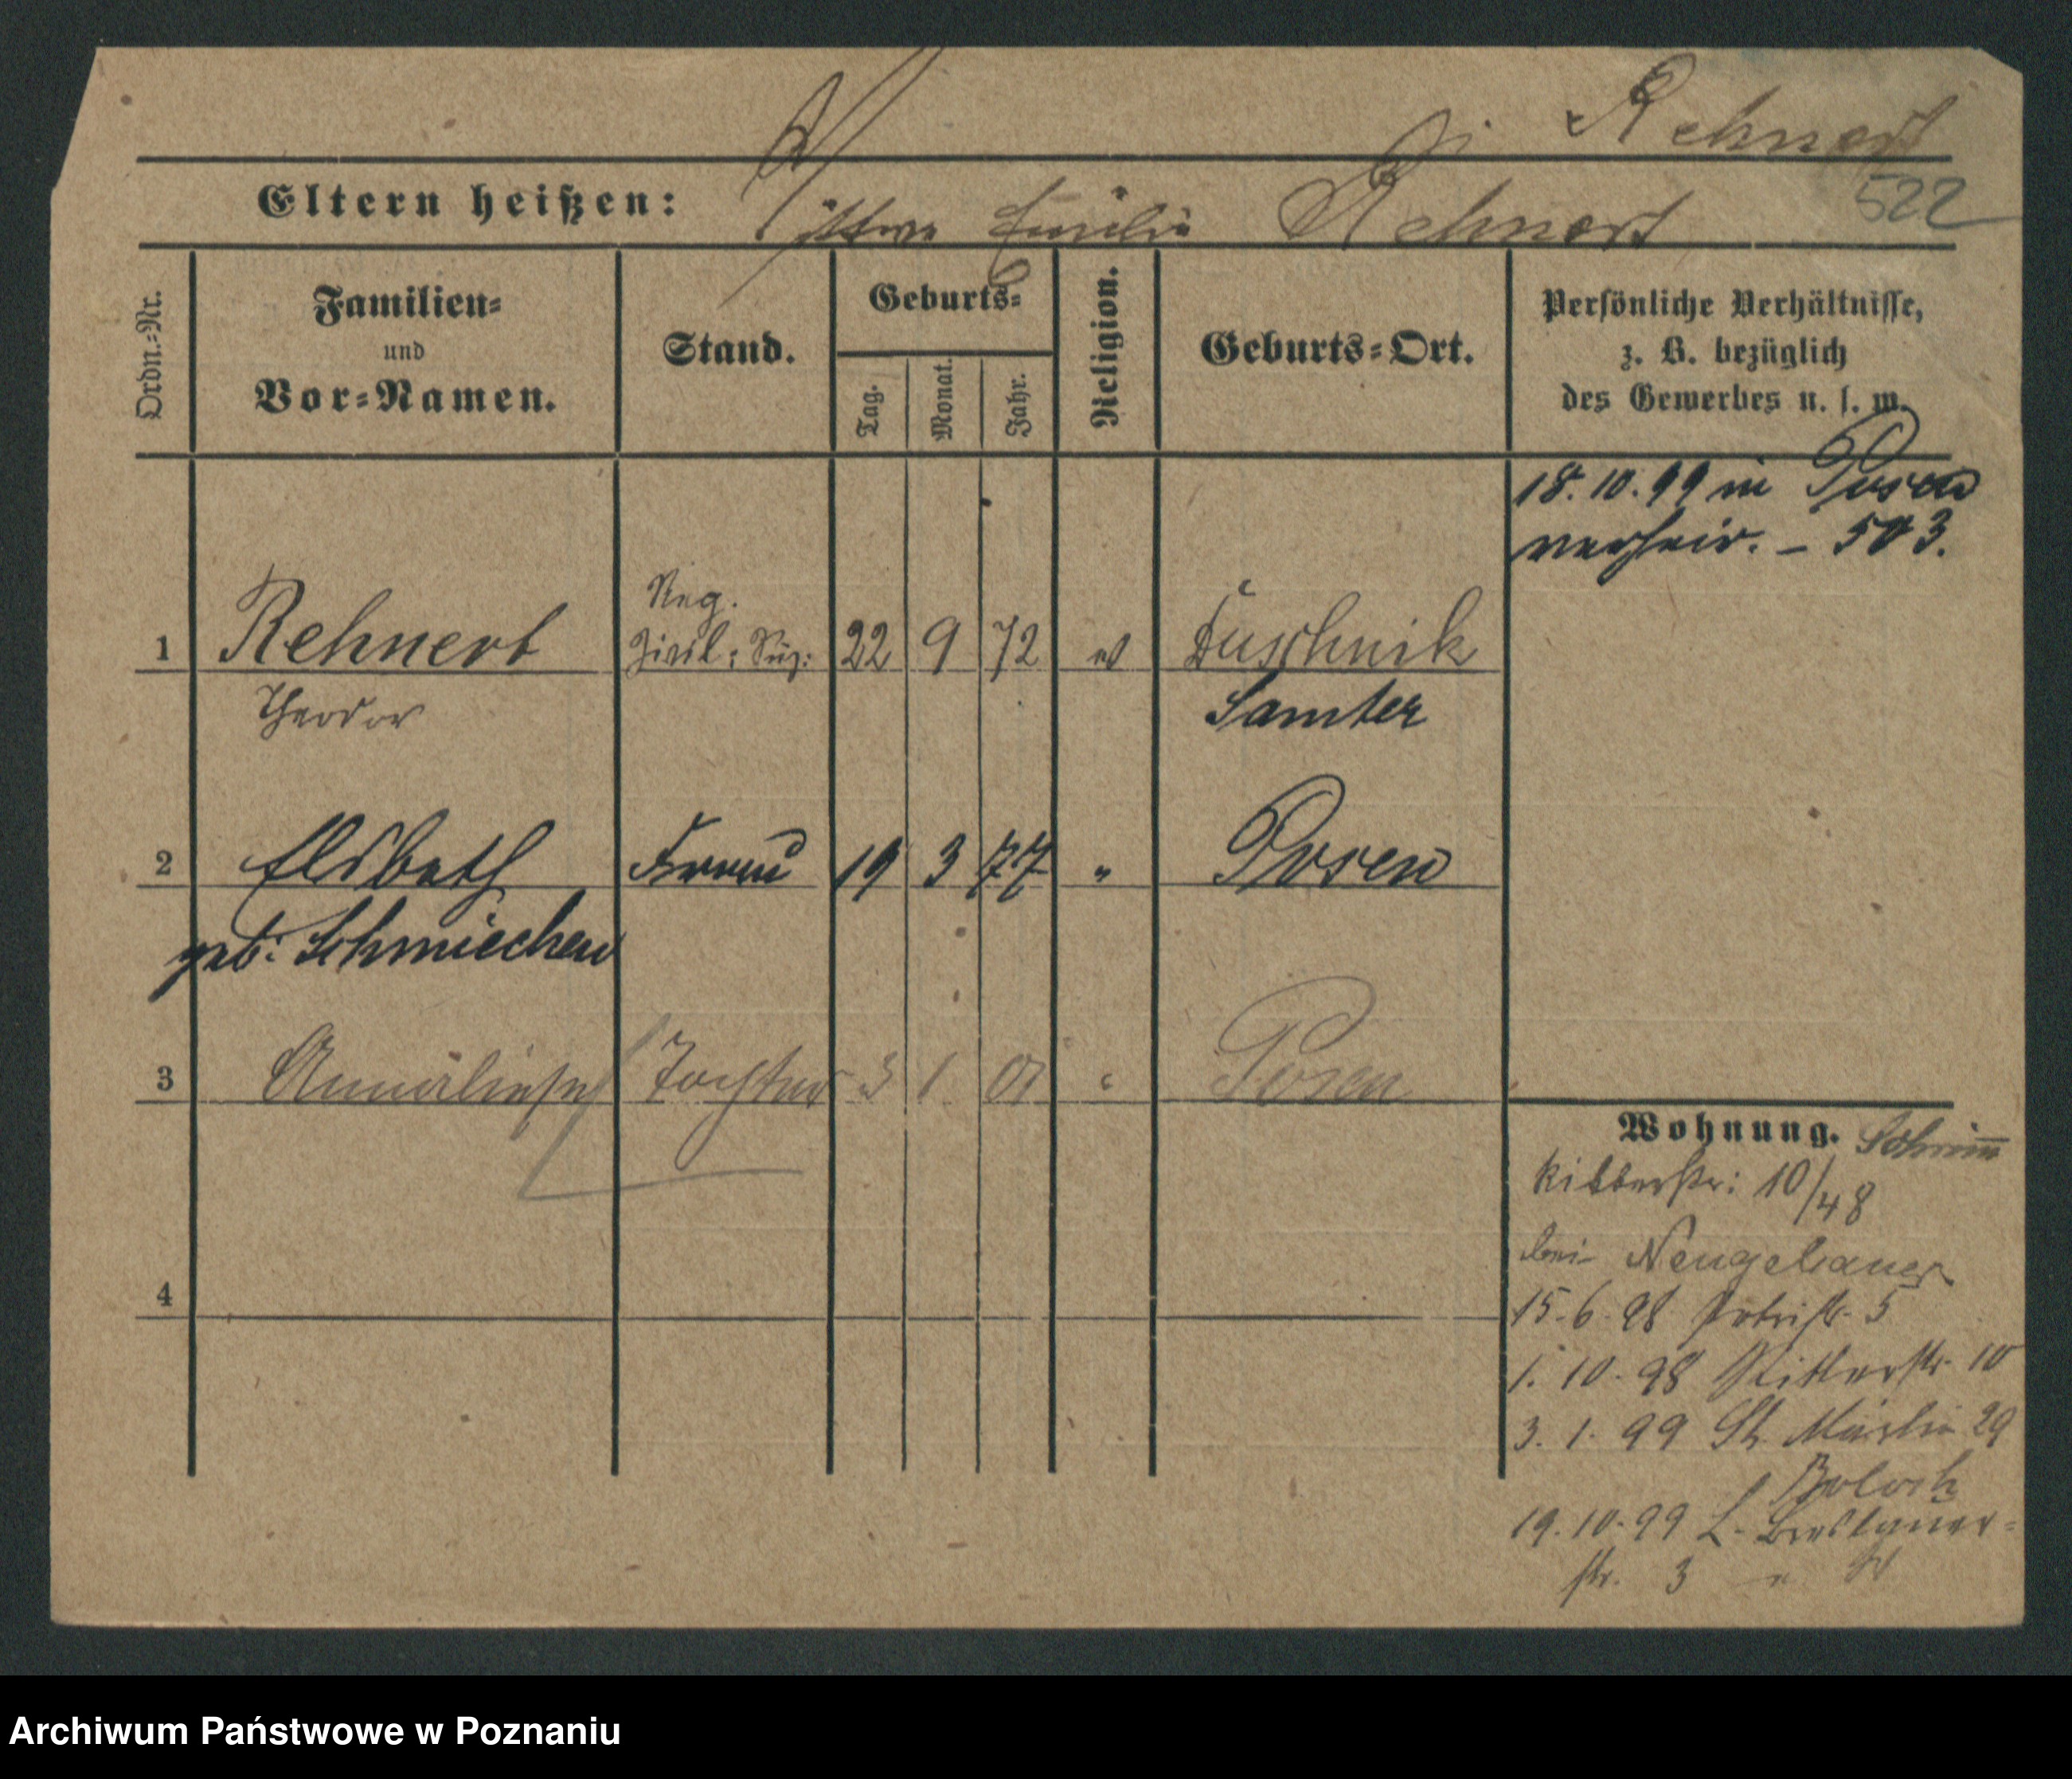 Rehnert
522
Eltern heißen: Wittwe Emilie Rehnert
Ordn.-Nr.
Familien-
und
Vor-Namen.
Stand.
Geburts-
Tag.
Monat.
Jahr.
Religion.
Geburts-Ort.
Persönliche Verhältnisse,
z. B. bezüglich
des Gewerbes u. s. w.
18. 10. 99 in Posen
verheir. – 503.
Reg.
1 Rehnert Zivil: Sup: 22 9 72 ev Duschnik
Theodor Samter
2 Elsbeth Frau 19 3 77 " Posen
geb: Schmiechen
3 Anneliese Tochter 3 1 01 " Posen
Wohnung. Schrimm
Ritterstr: 10/48
bei Neugebauer
4
15. 6. 98 Petristr. 5
1. 10. 98 Ritterstr. 10
3. 1. 99 St. Martin 29
19. 10. 99 L. Breslauer-
str. 3
Archiwum Państwowe w Poznaniu